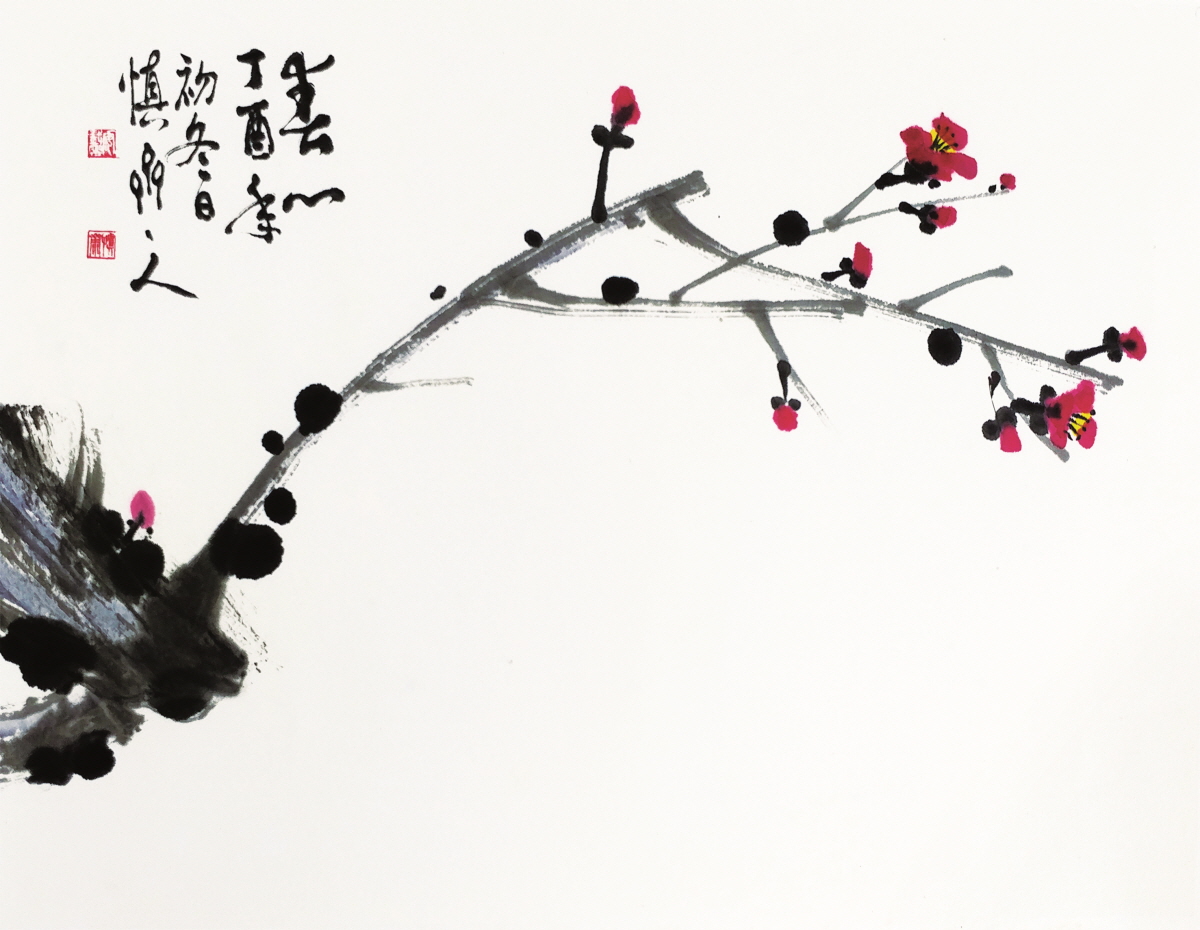 春心
丁酉年
初冬日
慎 人